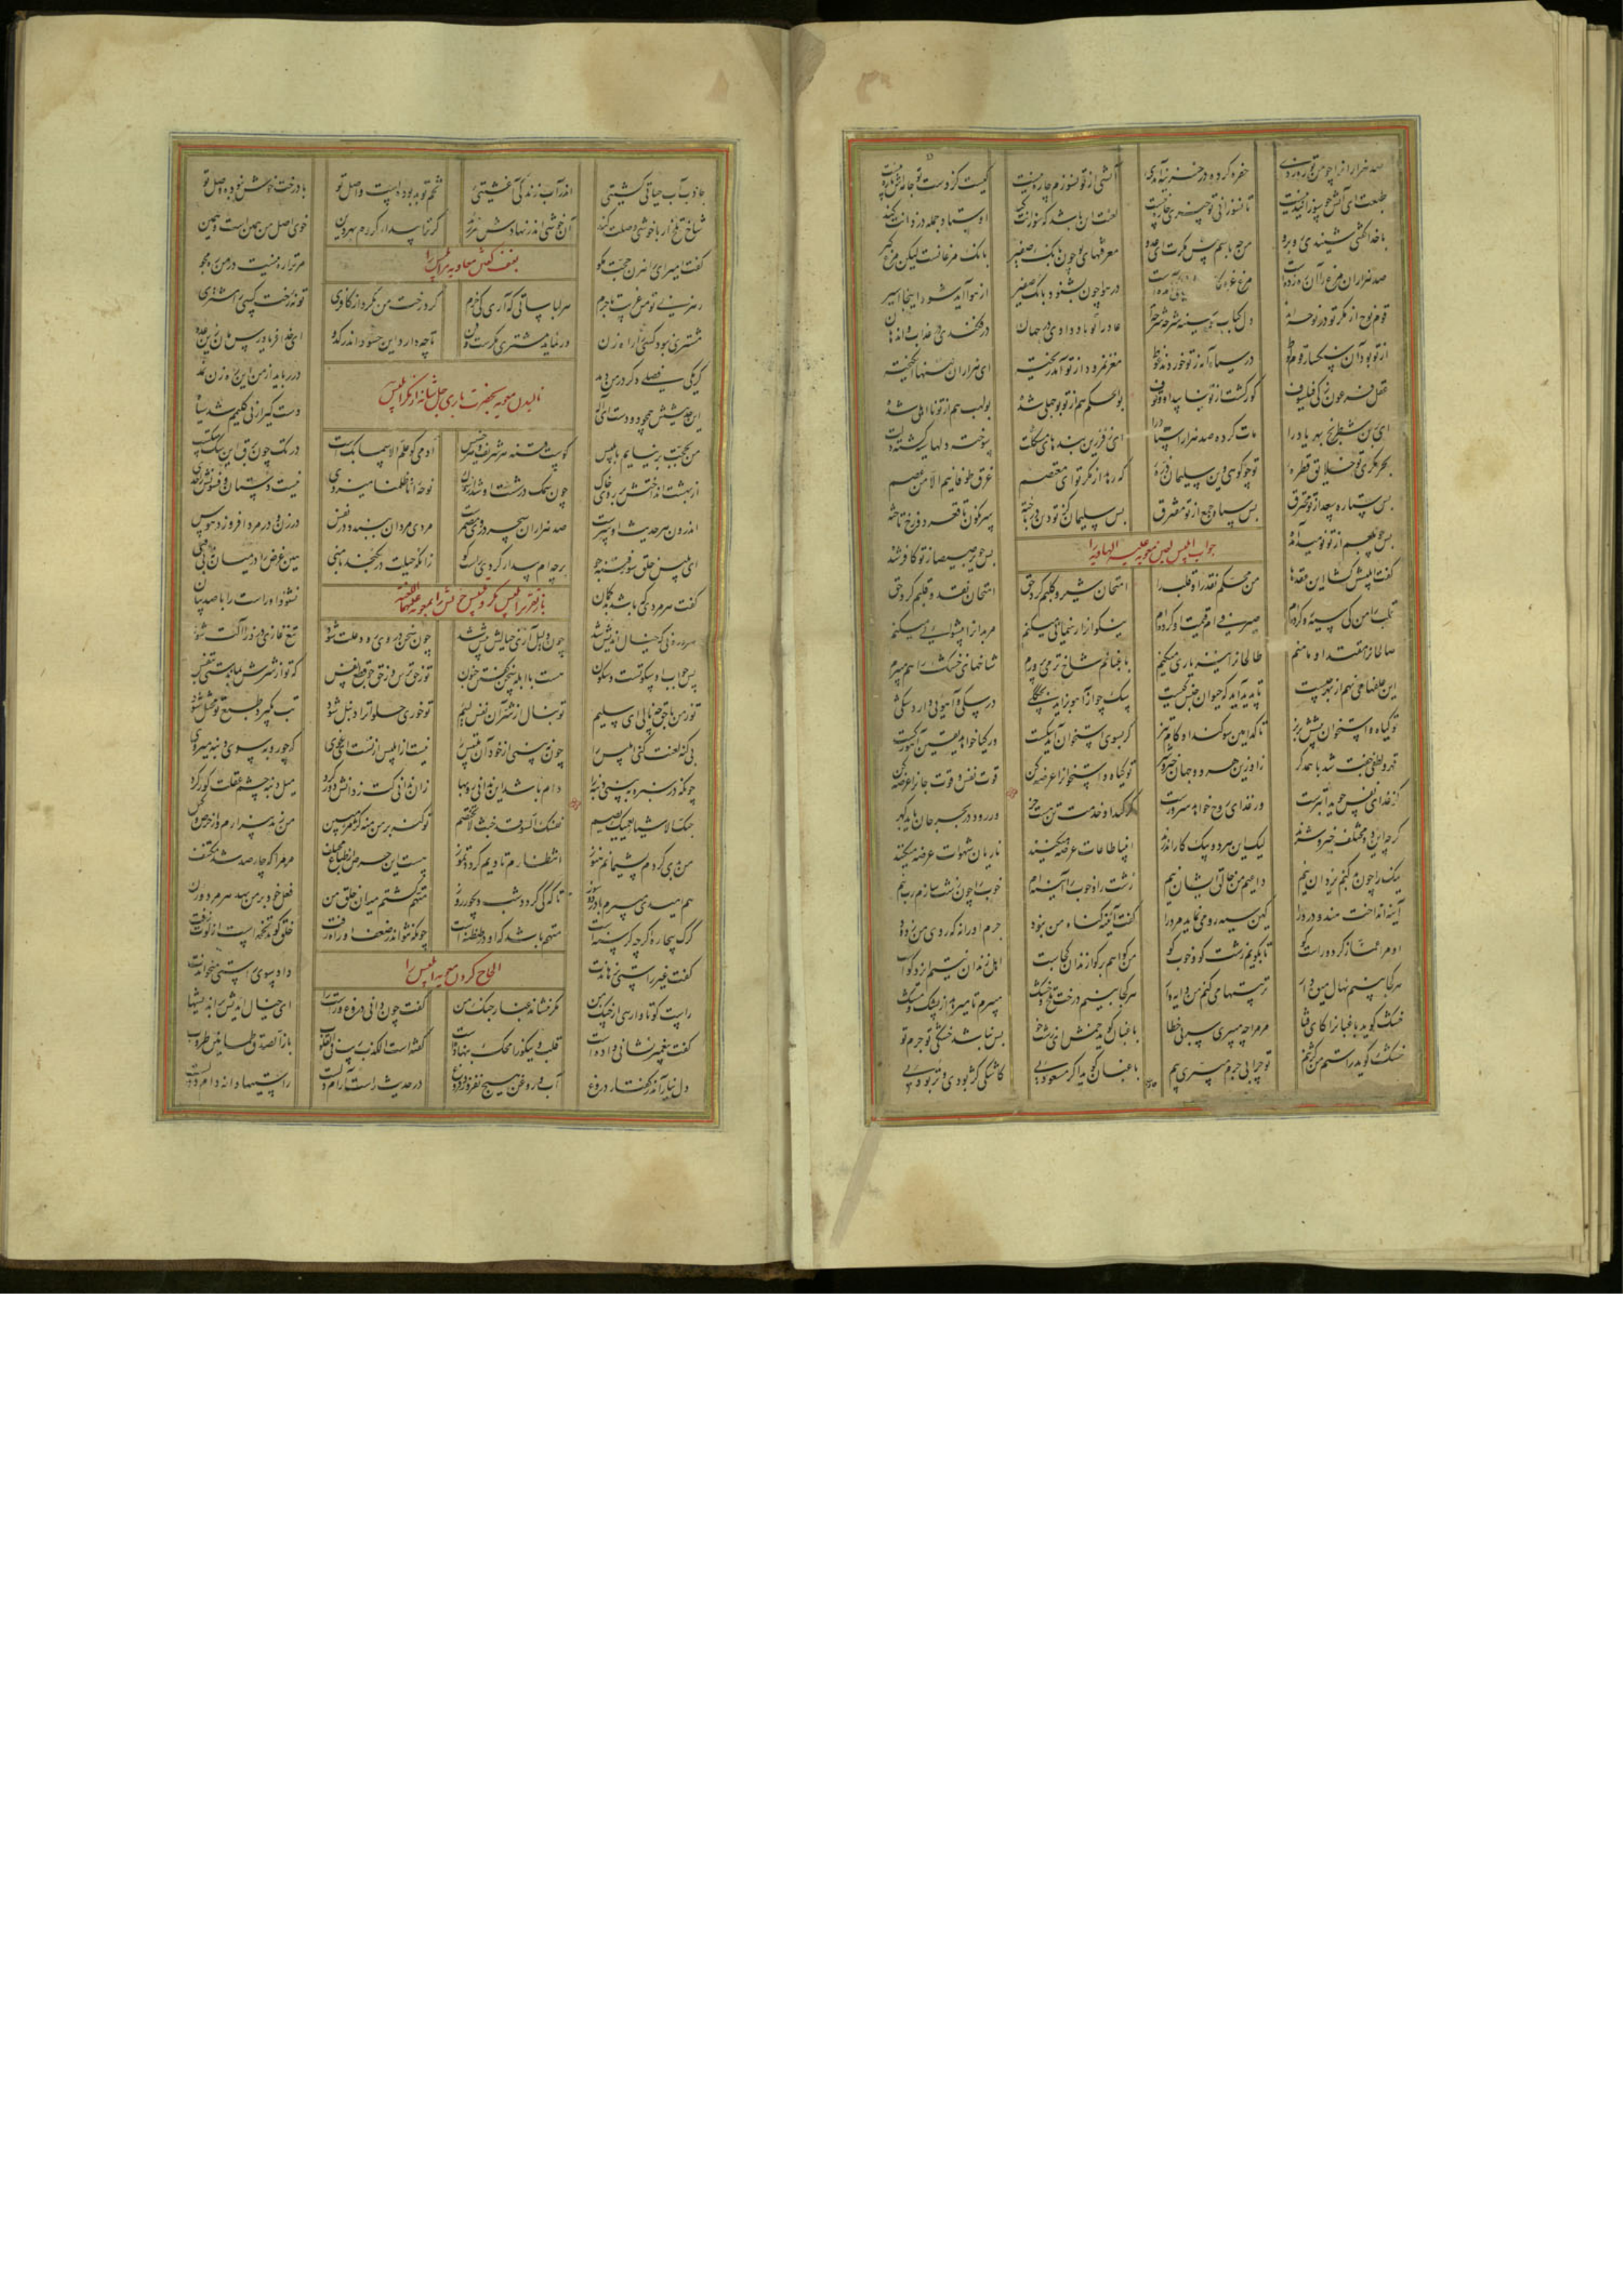 صد هزاران را چو من تو ره زدی حفره کردی در خزینه آمدی آتشی از تو نسوزم چاره نیست کیست کز دست تو جامه‌اش پاره نیست
طبعت ای آتش چو سوزانیدنیست تا نسوزانی تو چیزی چاره نیست لعنت آن باشد که سوزانت کند اوستاد جمله دزدانت کند
با خدا گفتی شنیدی روبرو من چه باشم پیش مکرت ای عدو معرفتهای تو چون بانک صفیر بانک مرغانست لیکن مرغ گیر
صد هزاران مرغ را آن ره زدست مرغ غره در هوا چون بشنود بانک صفیر از هوا آید شود اینجا اسیر
قوم نوح از مکر تو در نوحه‌اند دل کباب و سینه شرحه شرحه‌اند عاد را تو باد دادی در جهان در فکندی در عذاب و اندهان
از تو بود آن سنگسار قوم لوط در سیاه آبه ز تو خوردند غوط مغز نمرود از تو آمد ریخته ای هزاران فتنها انگیخته
عقل فرعون ذکی فیلسوف کور گشت از تو نیابید او وقوف بولهب هم از تو نااهلی شده بوالحکم هم از تو بوجهلی شده
ای برین شطرنج بهر یاد را مات کرده صد هزار استاد را ای ز فرزین بندهای مشکلت سوخته دلها سیه گشته دلت
بحر مکری تو خلایق قطره‌ تو چو کوهی وین سلیمان ذره که رهد از مکر تو ای مختصم غرق طوفانیم الا من عصم
بس ستاره سعد از تو محترق بس سپاه و جمع از تو مفترق بس سلیمان کز تو دین در باخته سرنگون تا قعر دوزخ تاخته
بس چو بلعم از تو نومید آمده بس چو برصیصا ز تو کافر شده
جواب ابلیس لعین معویه علیه الهاویه را
گفت ابلیس گشا این عقدها من محکم نقد را و قلب را امتحان شیر و کلبم کرد حق امتحان نقد و قلبم کرد حق
قلب را من کی سیه رو کرده‌ام صیرفی‌ام قیمت او کرده‌ام نیکوانرا رهنمایی میکنم مر بدانرا پیشوایی میکنم
صالحانرا مقتدا و مامنم طالحانرا نیز یاری میکنم باغبانم شاخ تر می پرورم شاخهای خشک را هم میبرم
این علفها می نهم از بهر چیست تا پدید آید که حیوان جنس کیست سگ چو از آهو بزاید بچگکی در سگی و آهویی دارد شکی
تو گیاه و استخوان پیشش بریز تا کدامین سو کند او گام تیز گر بسوی استخوان آید سگست ور گیا خواهد یقین آهو رگست
قهر و لطفی جفت شد با همدگر زاد ازین هر دو جهان خیر و شر تو گیاه و استخوانرا عرضه کن قوت نفس و قوت جانرا عرضه کن
گر غذای نفس جوید ابترست ور غذای روح خواهد سرورست گر کند او خدمت تن هست خر ور رود در بحر جان یابد گهر
گرچه این دو مختلف خیر و شرند لیک این هر دو بیک کار اندرند انبیا طاعات عرضه میکنند ناریان شهوات عرضه میکنند
نیک را چون بد کنم یزدان نیم داعیم من خالق ایشان نیم خوب را چون زشت سازم رب نیم زشت را و خوب را آینه‌ام
آینه انداخت هندو در درا کین سیه رو می نماید مرد را گفت آینه گناه من نبود جرم او را نه که روی من زدود
او مرا غماز کرد و راست گو تا بگویم زشت کو و خوب کو من گواهم بر گوا زندان کجاست اهل زندان نیستم ایزد گواست
هر کجا بینم نهال میوه‌دار تربیتها می کنم من دایه وار هر کجا بینم درخت تلخ و خشک میبرم تا میرهد از پشک مشک
خشک گوید باغبانرا کای فتا مر مرا چه میبری سر بی خطا باغبان گوید خمش ای زشت خو بس نباشد خشکی تو جرم تو
خشک گوید راستم من کژ نیم تو چرا بی جرم میبری پیم باغبان گوید اگر مسعودیی کاشکی کژ بودیی و تر بودیی
جاذب آب حیاتی گشتیی اندر آب زندگی آغشتیی تخم تو بد بوده است و اصل تو با درخت خوش نبوده وصل تو
شاخ تلخ ار با خوشی وصلت کند آن خوشی اندر نهادش بر زند گر ترا بیدار کردم بهر دین خوی اصل من همین است و همین
بعنف گفتن معاویه مر ابلیس را
گفت امیر ای راهزن حجت مگو مر ترا ره نیست در من ره مجو
رهزنی و تو من غریب و تاجرم هر لباساتی که آری کی خرم گرد رخت من مگرد از کافری تو نه رخت کسی را مشتری
مشتری نبود کسی را راه زن ور نماید مشتری مکرست و فن تا چه دارد این حسود اندر کدو ای خدا فریاد رس ما را زین عدو
گر یکی فصلی دگر در من دمد در رباید از من این ره زن نمد
نالیدن معویه بحضرت باری جل شانه از مکر ابلیس
این حدیثش همچو دودست ای اله دست گیر ار نی گلیمم شد سیاه
من بحجت بر نیایم با بلیس کوست فتنه هر شریف و هر خسیس آدمی کو علم الاسما بکست در تک چون برق این سگ بی تکست
از بهشت انداختش بر روی خاک چون سمک در شست او شد از سماک نوحه انا ظلمنا میزدی نیست دستان و فسونش را حدی
اندرون هر حدیث او شرست صد هزاران سحر در وی مضمرست مردی مردان ببندد در نفس در زن و در مرد افروزد هوس
ای بلیس خلق سوز فتنه جو بر چه‌ام بیدار کردی راست گو زانکه حیلت در نگنجد با منی هین غرض را در میان نه بی فنی
باز تقریر ابلیس مکر و تلبیس خویش را بمعویه علیهما اللعنه
گفت هر مردی که باشد بدگمان نشنود او راست را با صد نشان
هر درونی که خیال اندیش شد چون دلیل آری خیالش بیش شد چون سخن در وی رود علت شود تیغ غازی دزد را آلت شود
پس جواب او سکوتست و سکون هست با ابله سخن گفتن جنون
تو ز من با حق چه نالی ای سلیم تو بنال از شر آن نفس لئیم تو خوری حلوا ترا دنبل شود تب بگیرد طبع تو مختل شود
بی گنه لعنت کنی ابلیس را چون نبینی از خود آن تلبیس را نیست از ابلیس از تست ای غوی که چو روبه سوی دنبه میروی
چونکه در سبزه ببینی دنبها دام باشد این ندانی روبها زان ندانی کت ز دانش دور کرد میل دنبه چشم عقلت کور کرد
حبک الاشیاء یعمیک یصم نفسک السودا جنت لا تختصم تو گنه بر من منه کژ مژ مبین من ز بد بیزارم و از حرص و کین
من بدی کردم پشیمانم هنوز انتظارم تا دیم گردد تموز
هم میدی سوز تا کی گردد شب و روز متهم گشتم میان خلق من فعل خود بر من نهد هر مرد و زن
گرگ بیچاره گرچه گرسنه‌است متهم باشد که او در طنطنه است چونکه نتواند ز ضعف او راه رفت خلق گوید تخمه است از لوت زفت
الحاح کردن معویه ابلیس را
گفت غیر راستی نرهاندت داد سوی راستی میخواندت
راست گو تا وارهی از چنگ من مکر ننشاند غبار جنگ من گفت چون دانی دروغ و راست را ای خیال اندیش پر اندیشها
گفت پیغمبر نشانی داده است قلب و نیکو را محک بنهاده است گفته است الکذب ریب فی القلوب باز الصدق طمانین طروب
دل نیارامد ز گفتار دروغ آب و روغن هیچ نفروزد فروغ در حدیث راست آرام دلست راستیها دانه دام دلست